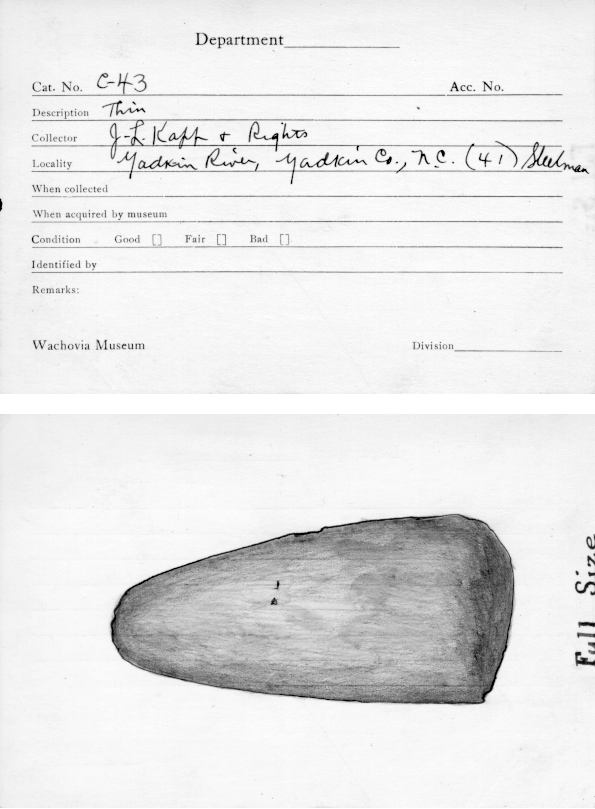 Department
Cat. No. C-43 Acc. No.
Description Thin
Collector J-L. Kapp + Rights
Locality Yadkin River, Yadkin Co., N.C. (41) Steelman
When collected
When acquired by museum
Condition Good [] Fair [] Bad []
Identified by
Remarks:
Wachovia Museum Division
Full Size